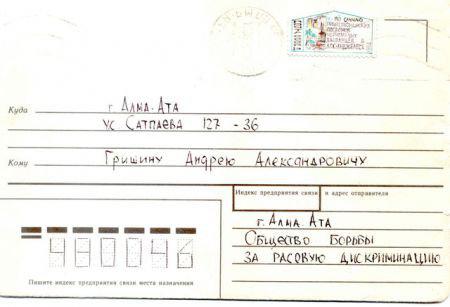 Куда
г Алма-Ата
ус Сатпаева 127 - 36
Кому
Гришину Андрею Александровичу
Индекс предприятия связи и адрес отправителя
г. Алма-Ата
Общество Борьбы
за расовую дискриминацию
480046
Пишите индекс предприятия связи места назначения